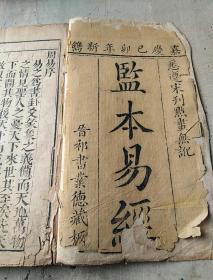 嘉慶己卯年新鐫
悉遵宋刊點畫無訛
監本易經
晉祁書業德藏板
周易序
易之為書卦爻彖象之義備而天地萬物
之情見聖人之憂天下來世其至矣
下而開其物後天下